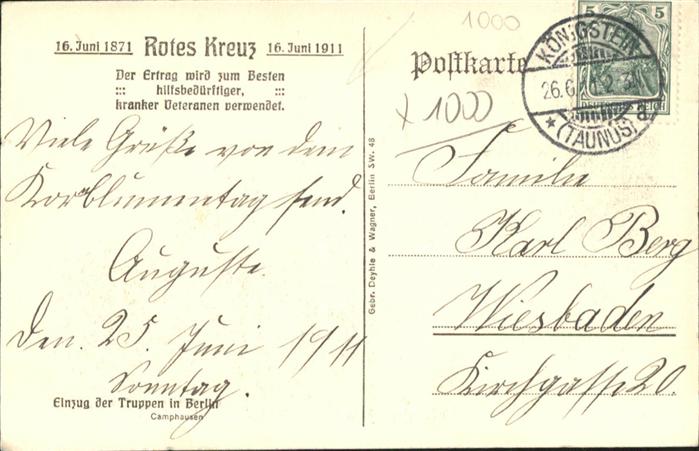 16. Juni 1871 Rotes Kreuz 16. Juni 1911
Der Ertrag wird zum Besten
::: hilfsbedürftiger, :::
kranker Veteranen verwendet.
Viele Grüße von dem
Kornblumentag send.
Auguste.
Den. 25. Juni 1911
Sonntag.
Einzug der Truppen in Berlin
Camphausen
Gebr. Deyhle & Wagner, Berlin SW. 48
1000
Postkarte
x 1000
5 5
DEUTSCHES REICH
KÖNIGSTEIN
26.6.11. 2-3N
* (TAUNUS) a
Familie
Karl Berg
Wiesbaden
Kirchgasse 20.